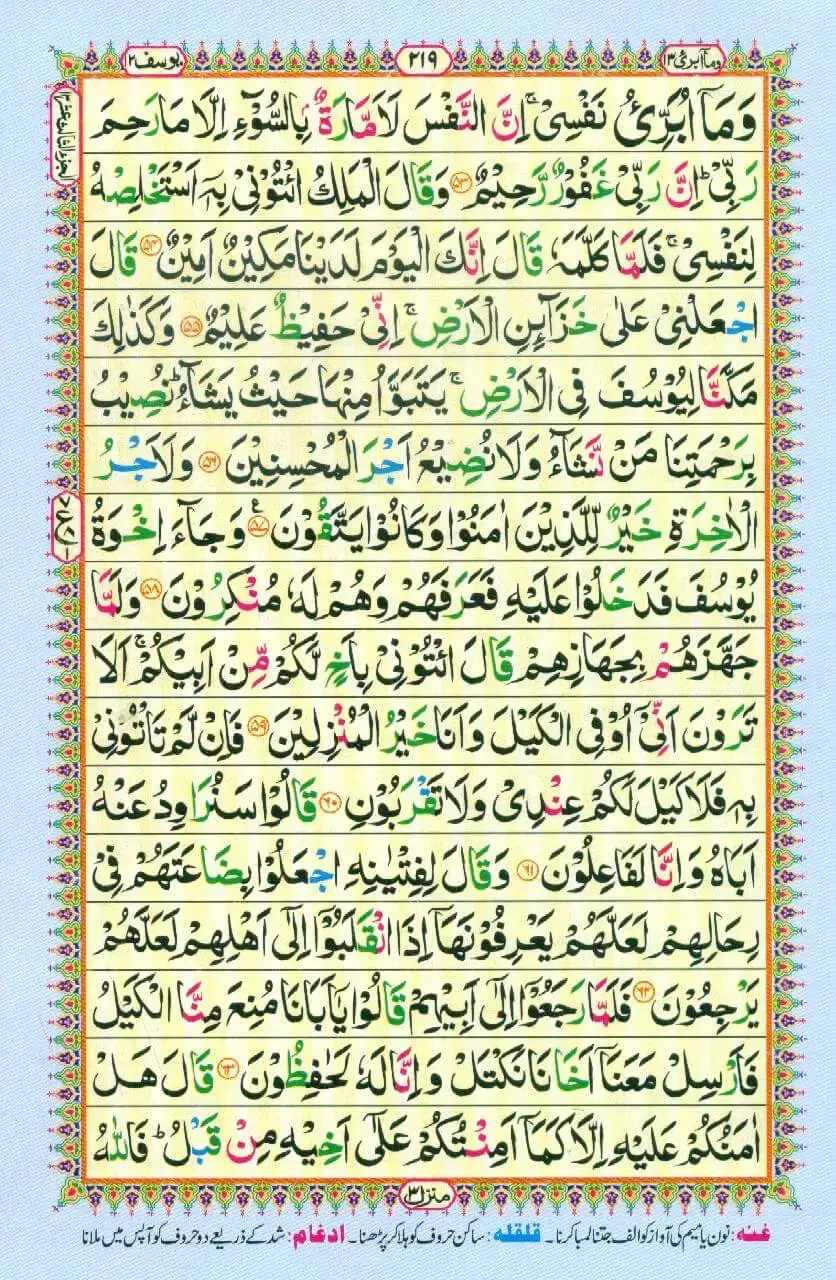 وما ابرئ ۱۳
۲۱۹
يوسف ۱۲
وَمَآ اُبَرِّئُ نَفْسِیْ ۚ اِنَّ النَّفْسَ لَاَمَّارَةٌۢ بِالسُّوْٓءِ اِلَّا مَا رَحِمَ
رَبِّیْ ؕ اِنَّ رَبِّیْ غَفُوْرٌ رَّحِیْمٌ ﴿۵۳﴾ وَقَالَ الْمَلِكُ ائْتُوْنِیْ بِهٖۤ اَسْتَخْلِصْهُ
لِنَفْسِیْ ۚ فَلَمَّا كَلَّمَهٗ قَالَ اِنَّكَ الْیَوْمَ لَدَیْنَا مَكِیْنٌ اَمِیْنٌ ﴿۵۴﴾ قَالَ
اجْعَلْنِیْ عَلٰی خَزَآىِٕنِ الْاَرْضِ ۚ اِنِّیْ حَفِیْظٌ عَلِیْمٌ ﴿۵۵﴾ وَكَذٰلِكَ
مَكَّنَّا لِیُوْسُفَ فِی الْاَرْضِ ۚ یَتَبَوَّاُ مِنْهَا حَیْثُ یَشَآءُ ؕ نُصِیْبُ
بِرَحْمَتِنَا مَنْ نَّشَآءُ وَلَا نُضِیْعُ اَجْرَ الْمُحْسِنِیْنَ ﴿۵۶﴾ وَلَاَجْرُ
الْاٰخِرَةِ خَیْرٌ لِّلَّذِیْنَ اٰمَنُوْا وَكَانُوْا یَتَّقُوْنَ ﴿۵۷﴾ ع وَجَآءَ اِخْوَةُ
یُوْسُفَ فَدَخَلُوْا عَلَیْهِ فَعَرَفَهُمْ وَهُمْ لَهٗ مُنْكِرُوْنَ ﴿۵۸﴾ وَلَمَّا
جَهَّزَهُمْ بِجَهَازِهِمْ قَالَ ائْتُوْنِیْ بِاَخٍ لَّكُمْ مِّنْ اَبِیْكُمْ ۚ اَلَا
تَرَوْنَ اَنِّیْۤ اُوْفِی الْكَیْلَ وَاَنَا خَیْرُ الْمُنْزِلِیْنَ ﴿۵۹﴾ فَاِنْ لَّمْ تَاْتُوْنِیْ
بِهٖ فَلَا كَیْلَ لَكُمْ عِنْدِیْ وَلَا تَقْرَبُوْنِ ﴿۶۰﴾ قَالُوْا سَنُرَاوِدُ عَنْهُ
اَبَاهُ وَاِنَّا لَفَاعِلُوْنَ ﴿۶۱﴾ وَقَالَ لِفِتْیٰنِهِ اجْعَلُوْا بِضَاعَتَهُمْ فِیْ
رِحَالِهِمْ لَعَلَّهُمْ یَعْرِفُوْنَهَاۤ اِذَا انْقَلَبُوْۤا اِلٰۤی اَهْلِهِمْ لَعَلَّهُمْ
یَرْجِعُوْنَ ﴿۶۲﴾ فَلَمَّا رَجَعُوْۤا اِلٰۤی اَبِیْهِمْ قَالُوْا یٰۤاَبَانَا مُنِعَ مِنَّا الْكَیْلُ
فَاَرْسِلْ مَعَنَاۤ اَخَانَا نَكْتَلْ وَاِنَّا لَهٗ لَحٰفِظُوْنَ ﴿۶۳﴾ قَالَ هَلْ
اٰمَنُكُمْ عَلَیْهِ اِلَّا كَمَاۤ اَمِنْتُكُمْ عَلٰۤی اَخِیْهِ مِنْ قَبْلُ ؕ فَاللّٰهُ
منزل ۳
غنه: نون یا میم کی آواز کو الف جتنا لمبا کرنا۔ قلقله: ساکن حروف کو ہلا کر پڑھنا۔ ادغام: شد کے ذریعے دو حروف کو آپس میں ملانا